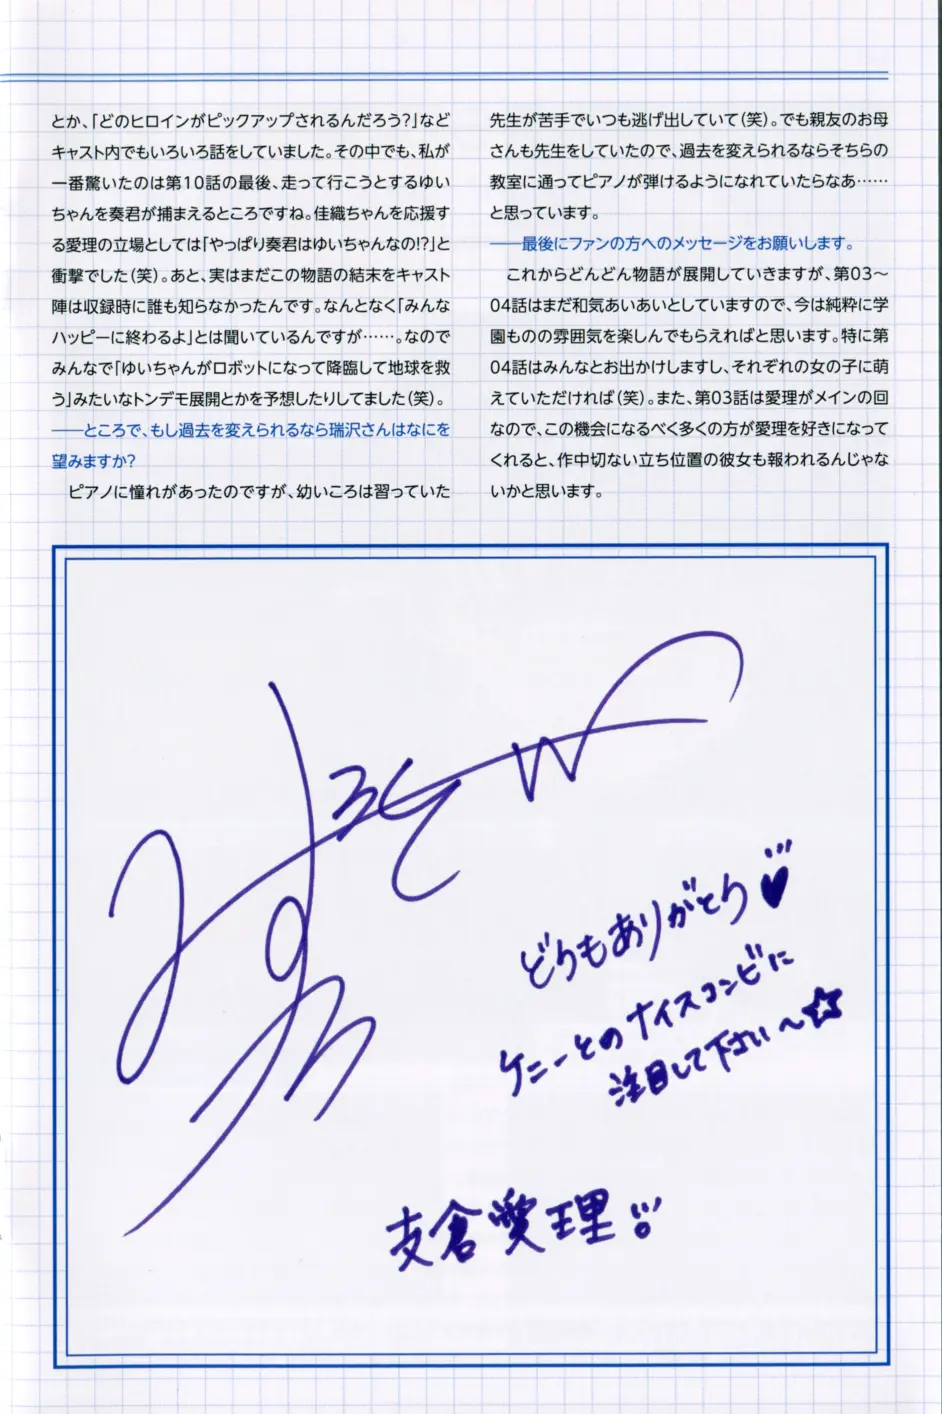 とか、「どのヒロインがピックアップされるんだろう?」など
キャスト内でもいろいろ話をしていました。その中でも、私が
一番驚いたのは第10話の最後、走って行こうとするゆい
ちゃんを奏君が捕まえるところですね。佳織ちゃんを応援す
る愛理の立場としては「やっぱり奏君はゆいちゃんなの!?」と
衝撃でした(笑)。あと、実はまだこの物語の結末をキャスト
陣は収録時に誰も知らなかったんです。なんとなく「みんな
ハッピーに終わるよ」とは聞いているんですが……。なので
みんなで「ゆいちゃんがロボットになって降臨して地球を救
う」みたいなトンデモ展開とかを予想したりしてました(笑)。
――ところで、もし過去を変えられるなら瑞沢さんはなにを
望みますか?
ピアノに憧れがあったのですが、幼いころは習っていた
先生が苦手でいつも逃げ出していて(笑)。でも親友のお母
さんも先生をしていたので、過去を変えられるならそちらの
教室に通ってピアノが弾けるようになれていたらなあ……
と思っています。
――最後にファンの方へのメッセージをお願いします。
これからどんどん物語が展開していきますが、第03〜
04話はまだ和気あいあいとしていますので、今は純粋に学
園ものの雰囲気を楽しんでもらえればと思います。特に第
04話はみんなとお出かけしますし、それぞれの女の子に萌
えていただければ(笑)。また、第03話は愛理がメインの回
なので、この機会になるべく多くの方が愛理を好きになって
くれると、作中切ない立ち位置の彼女も報われるんじゃな
いかと思います。
どうもありがとう♥
ケニーとのナイスコンビに
注目して下さい〜☆
支倉愛理